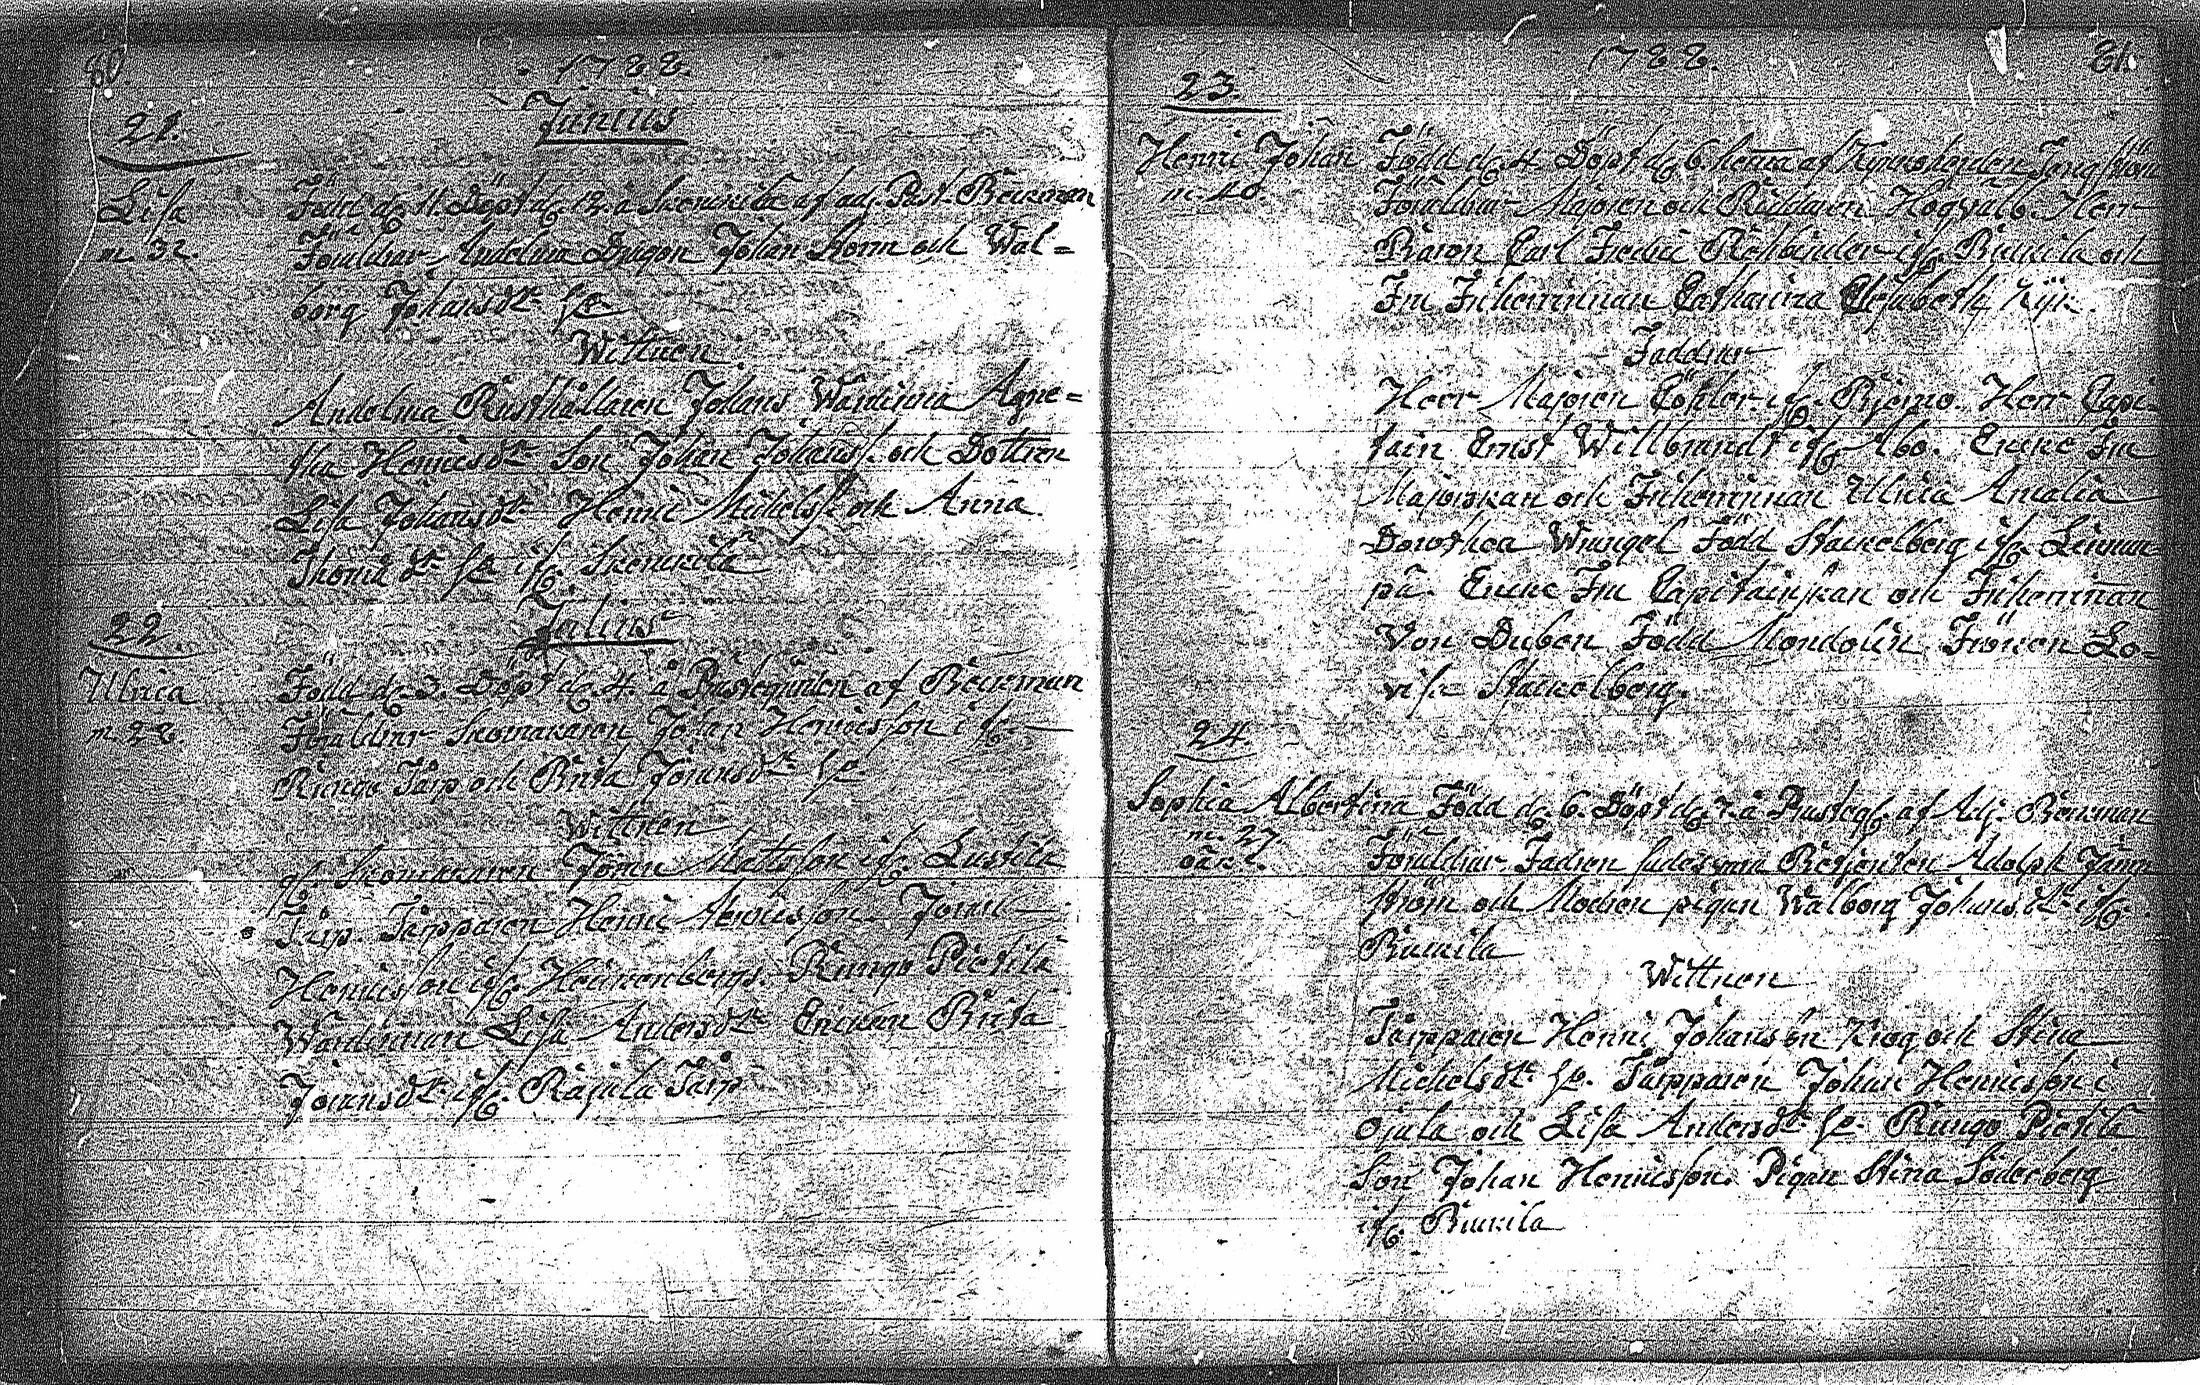 80.
1788.
Junius
21.
Lisa
m. 32.
Född d. 11. Döpt d. 12. å Skenikila af adj. Past. Beckman
Föräldrar Andelma Dragon Johan Storm och Wal=
borg Johansdtr
Wittnen
Andelma Rusthållaren Johans Wärdinna Agne=
tha Henricsdtr Son Johan Johanss. och Dottren
Lisa Johansdtr Henric Michelss. och Anna
22.
Julius
Ullrica
m. 28.
Född d. 3. Döpt d. 4. å Prästegården af Beckman
Föräldrar Skomakaren Johan Henricsson
Rungo Tårp och Brita Jöransdtr
Wittnen
Skomakaren Jöran Mattsson
Tårp. Tårpparen Henric Henricsson. Jöran
Henricsson Rungo Pietilä
Wärdinnan Lisa Andersdtr Enckan Brita
Jöransdtr Råjula Tårp
1788.
81.
23.
Henric Johan
m. 40.
Född d. 4. Döpt d. 6. hema af Kyrckoherden
Föräldrar Majoren och Riddaren Högvälb. Herr
Baron Carl Fredric Rehbinder Biuckila och
Fru Friherrinnan Catharina Elisabeth
Faddrar
Herr Majoren Cöhler Bjerno. Herr Capi=
tain Ernst Willbrandt Åbo. Encke Fru
Majorskan och Friherrinnan Ullrica Amalia
Dorothea Wrangel Född Stackelberg Lemun=
pä. Encke Fru Capitainskan och Friherrinnan
Von Duben Född Mondolin Fröken Lo=
visa Stackelberg.
24.
Sophia Albertina
m. 27.
oäckt.
Född d. 6. Döpt d. 7. å Prusteg. af Adj. Beckman
Föräldrar Fadren Betjenten Adolph
ström och Modren pigan Walborg Johansdtr
Biuckila
Wittnen
Tårpparen Henric Johansson Krog och Stina
Michelsdtr Tårpparen Johan Henricsson i
Ojula och Lisa Andersdtr Rungo Pietilä
Son Johan Henricsson. Pigan Stina Söderberg
Biuckila